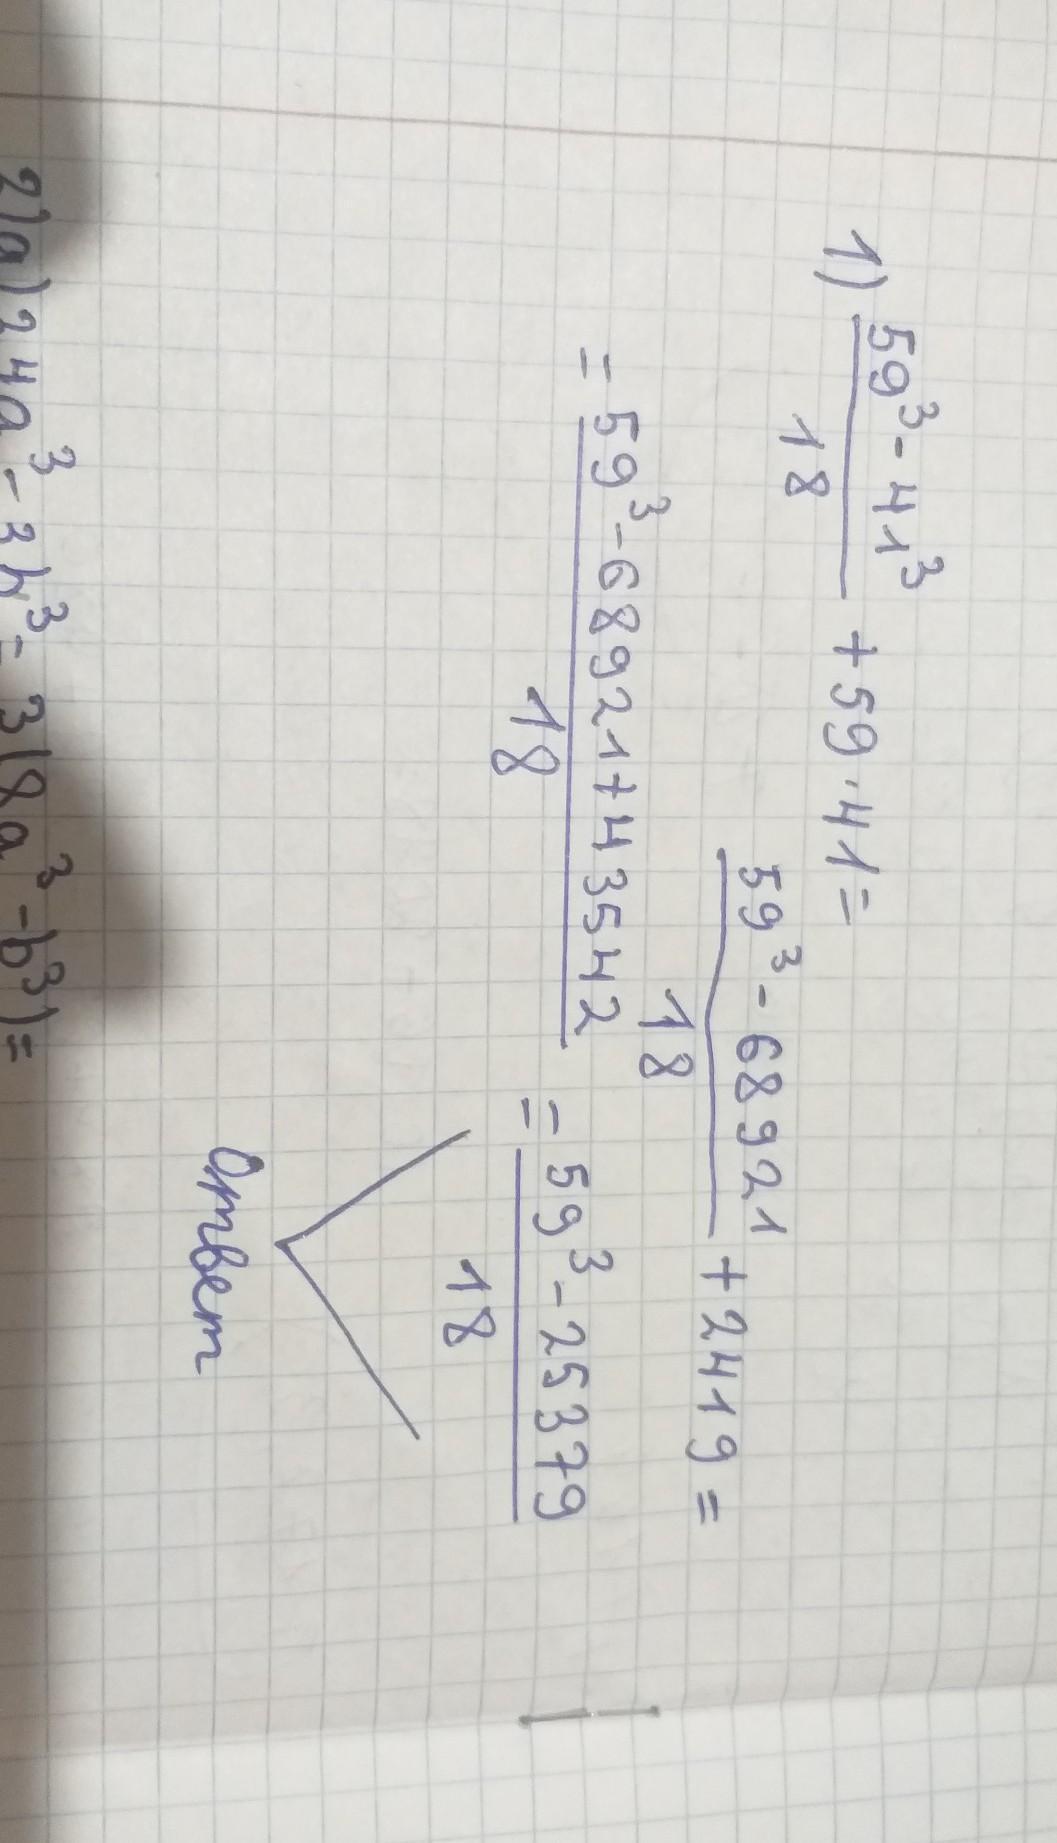 1) (59³ - 41³)/18 + 59 · 41 =
(59³ - 68921)/18 + 2419 =
= (59³ - 68921 + 43542)/18 = (59³ - 25379)/18
Ответ
2) a) 24a³ - 3b³ = 3(8a³ - b³) =